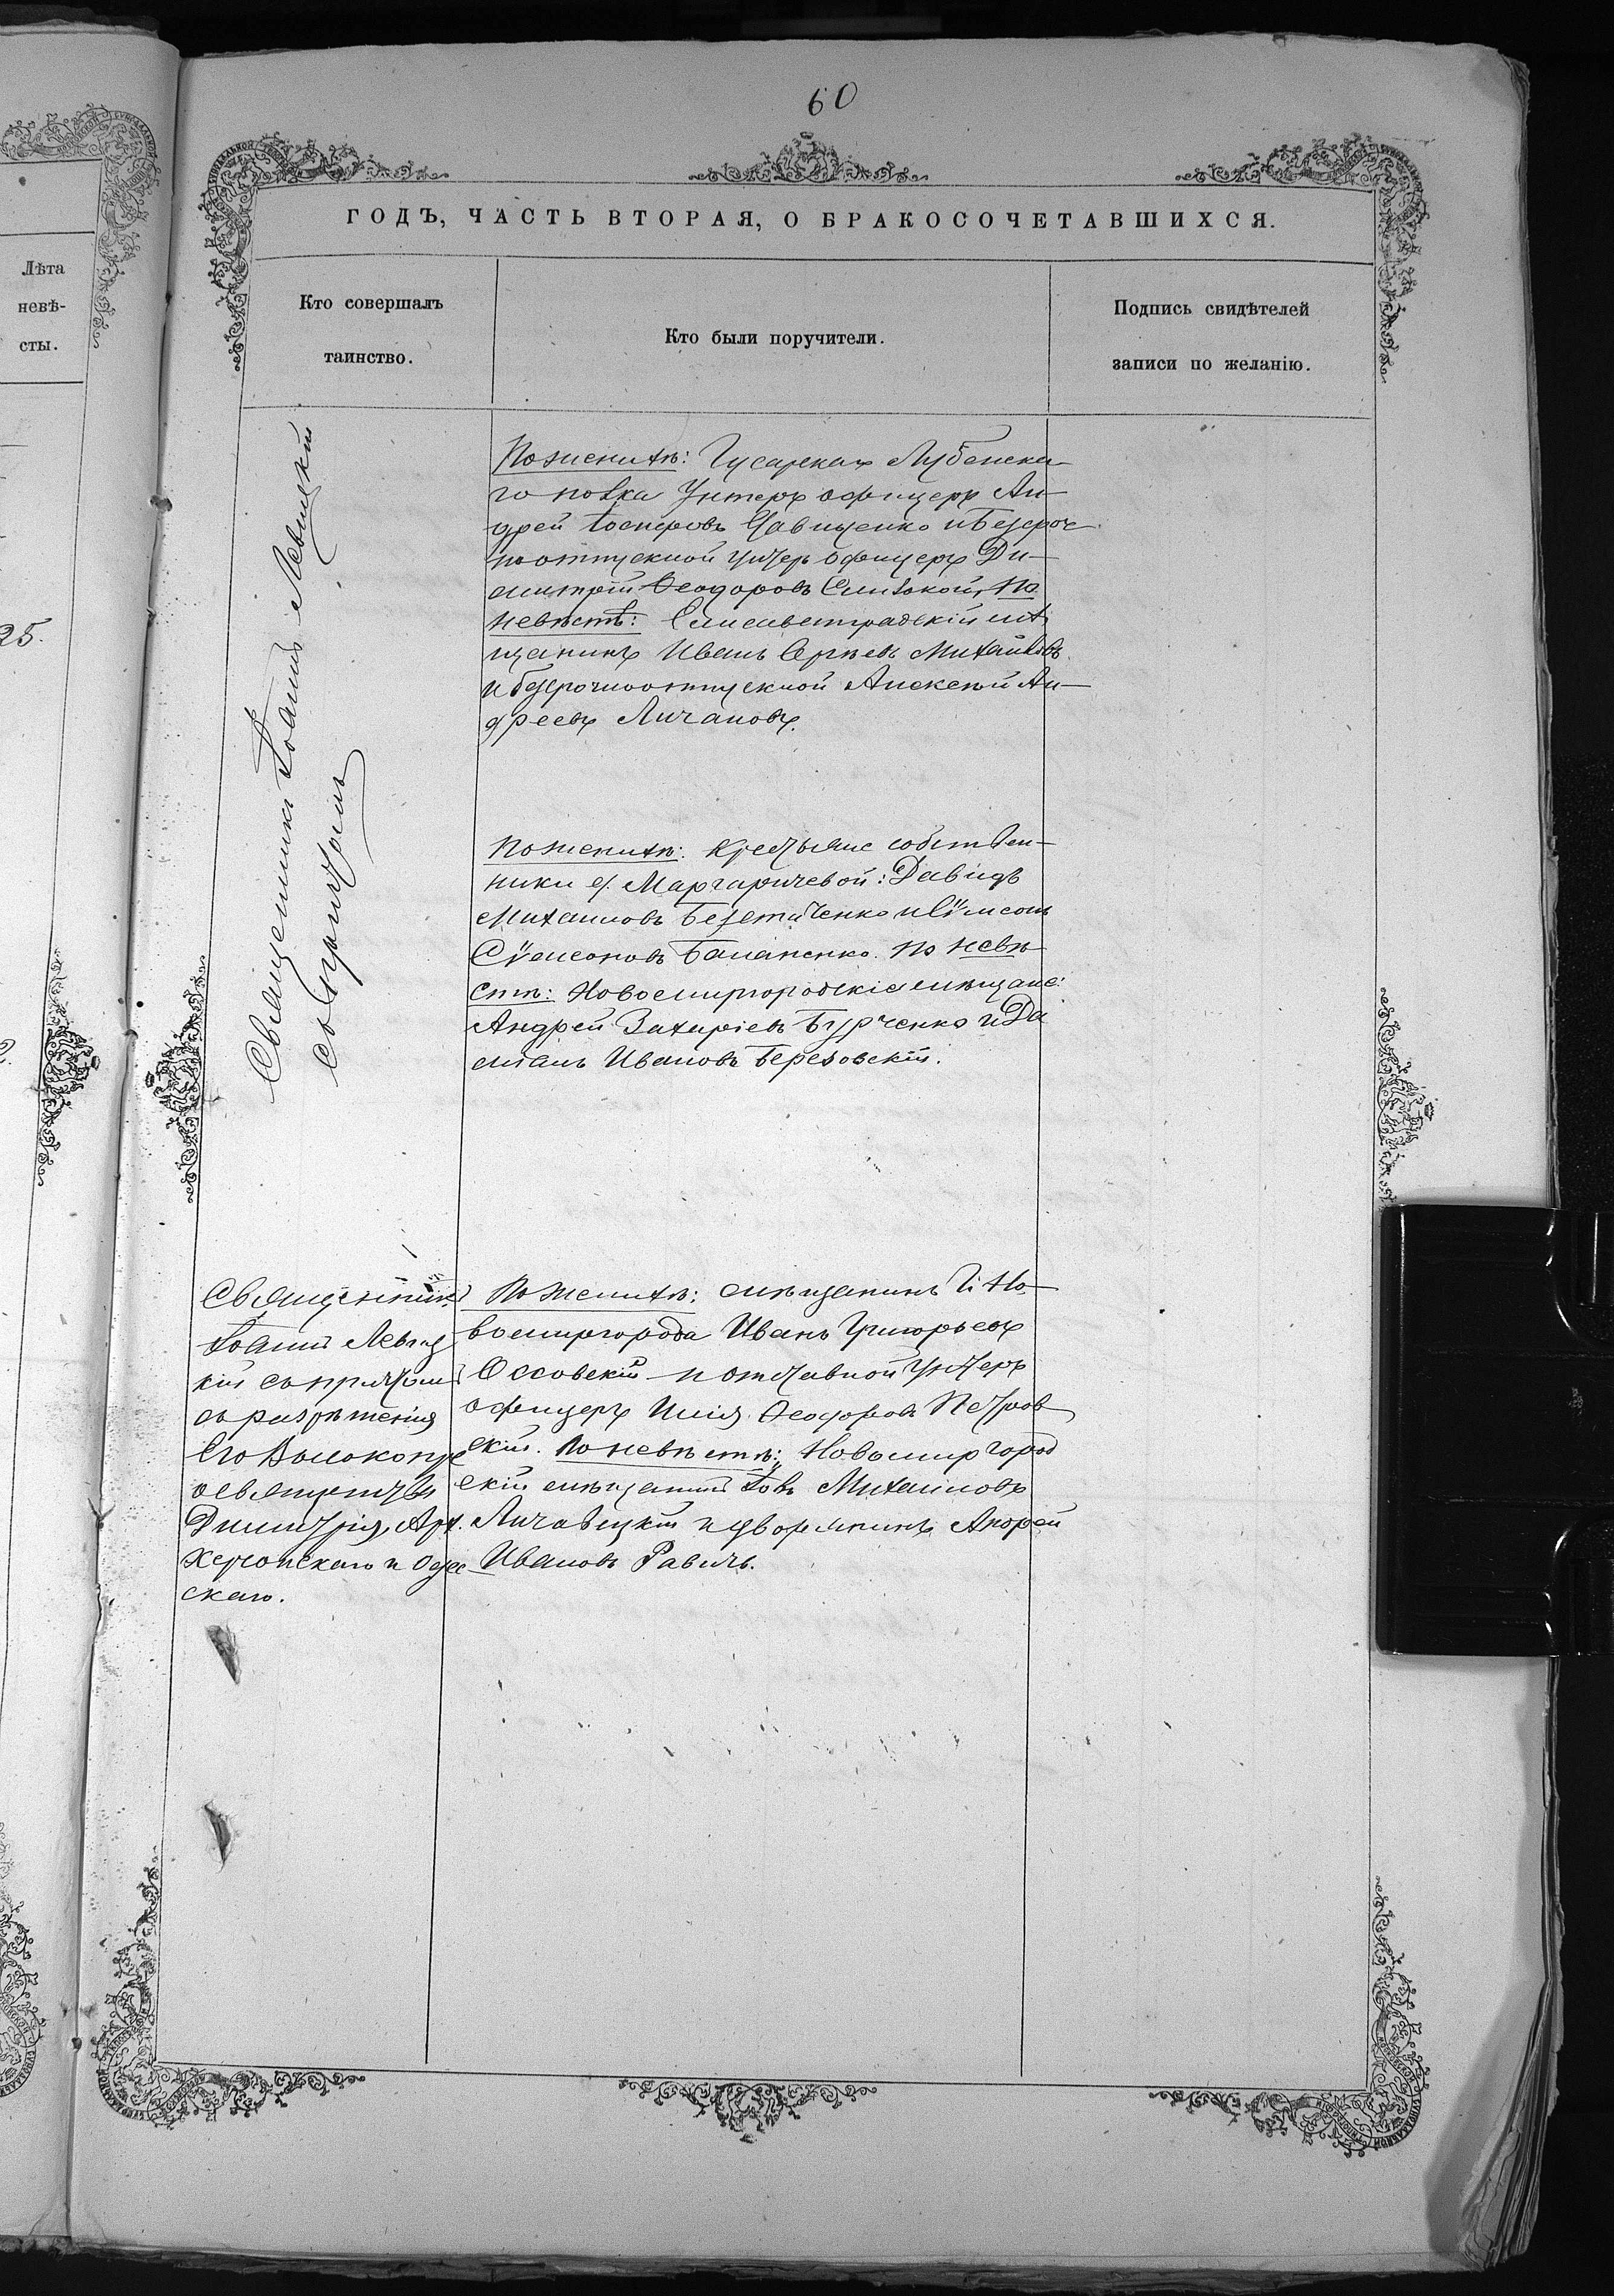 60
ГОДЪ, ЧАСТЬ ВТОРАЯ, О БРАКОСОЧЕТАВШИХСЯ.
Лѣта
невѣ-
сты.
25.
Кто совершалъ
таинство.
Кто были поручители.
Подпись свидѣтелей
записи по желанію.
Священникъ Іоаннъ Левицкій
съ причтомъ
По женихѣ: Гусарскаго Лубенска-
го полка Унтеръ офицеръ Ан-
дрей Савищенко и безсроч
ноотпускной унтеръ офицеръ Ди-
митрій Ѳеодоровъ По
невѣстѣ: Елисаветградскій мѣ
щанинъ Иванъ Михайловъ
и безсрочноотпускной Алексѣй Ан-
дреевъ Личановъ.
По женихѣ: Крестьяне собствен-
ники с. Маргаричевой: Давидъ
Михаиловъ и Сѵмеонъ
Сѵмеоновъ Баланенко. По невѣ-
стѣ: Новомиргородскіе мѣщане:
Андрей Захаріевъ Бурченко и Да
міанъ Ивановъ Березовскій.
Священникъ
Іоаннъ Левиц
кій съ причтомъ
съ разрѣшенія
Его Высокопре
освященства
Димитрія, Арх.
Херсонскаго и Одес
скаго.
По женихѣ: мѣщанинъ г. Но-
вомиргорода Иванъ Григорьевъ
Оссовскій и отставной унтеръ
офицеръ Илія Ѳеодоровъ Петров
скій. По невѣстѣ: Новомиргород
скій мѣщанинъ Іовъ Михаиловъ
Личавецкій и дворянинъ Андрей
Ивановъ Равичъ.